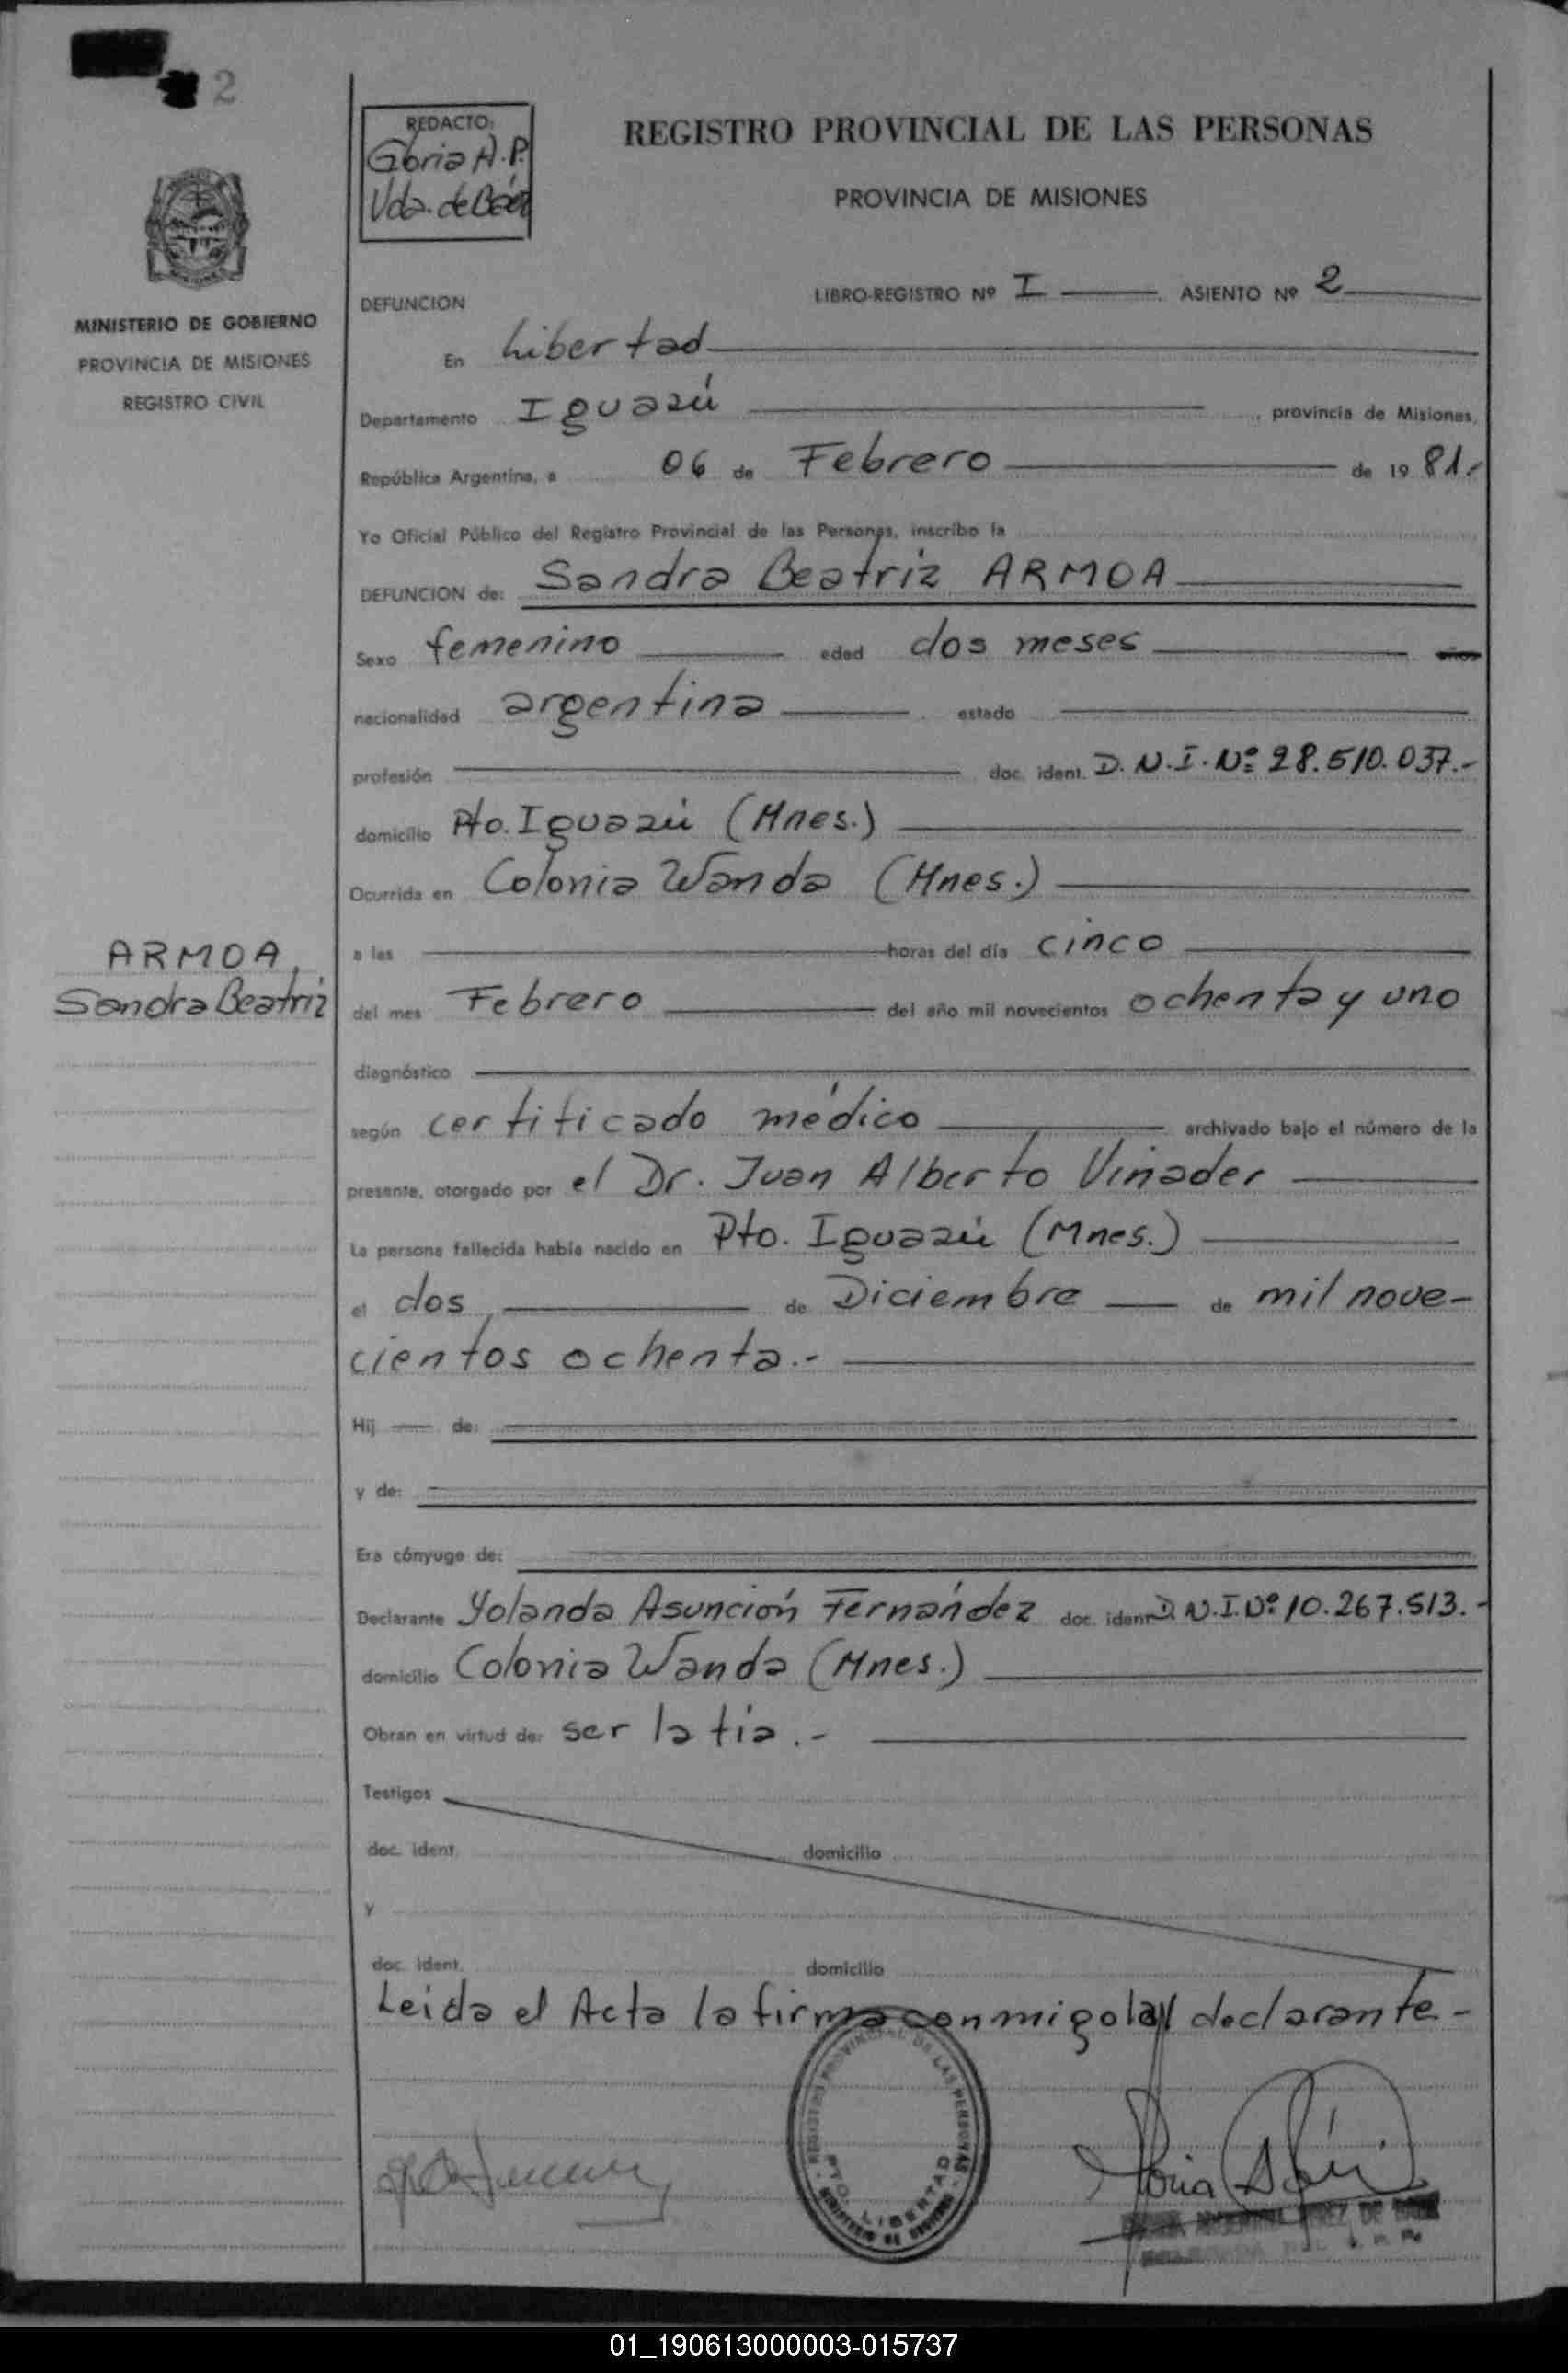 2
REDACTO:
Gloria A. P.
Vda. de Báez
REGISTRO PROVINCIAL DE LAS PERSONAS
PROVINCIA DE MISIONES
MINISTERIO DE GOBIERNO
PROVINCIA DE MISIONES
REGISTRO CIVIL
DEFUNCION LIBRO-REGISTRO Nº I ASIENTO Nº 2
En Libertad
Departamento Iguazú provincia de Misiones,
República Argentina, a 06 de Febrero de 19 81.
Yo Oficial Público del Registro Provincial de las Personas, inscribo la
DEFUNCION de: Sandra Beatriz ARMOA
Sexo femenino edad dos meses años
nacionalidad argentina estado
profesión doc. ident. D.N.I. Nº 28.510.037.-
domicilio Pto. Iguazú (Mnes.)
Ocurrida en Colonia Wanda (Mnes.)
ARMOA,
Sandra Beatriz
a las horas del día cinco
del mes Febrero del año mil novecientos ochenta y uno
diagnóstico
según certificado médico archivado bajo el número de la
presente, otorgado por el Dr. Juan Alberto Vinader
La persona fallecida había nacido en Pto. Iguazú (Mnes.)
el dos de Diciembre de mil nove-
cientos ochenta.-
Hij de:
y de:
Era cónyuge de:
Declarante Yolanda Asunción Fernández doc. ident. D.N.I. Nº 10.267.513.-
domicilio Colonia Wanda (Mnes.)
Obran en virtud de: ser la tía.-
Testigos
doc. ident. domicilio
y
doc. ident. domicilio
Leida el Acta la firma conmigo la declarante-
REGISTRO PROVINCIAL DE LAS PERSONAS
PTO. LIBERTAD
01_190613000003-015737